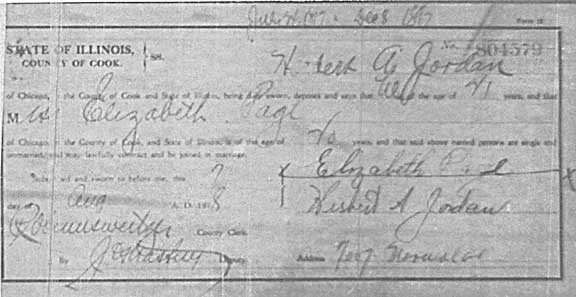 Dec 8 1897
Form
STATE OF ILLINOIS,
COUNTY OF COOK. } SS.
No. 804579
Herbert A Jordan
of Chicago, in the County of Cook and State of Illinois, being duly sworn, deposes and says that he is of the age of 41 years, and that
Miss Elizabeth Page
of Chicago, in the County of Cook, and State of Illinois, is of the age of 40 years, and that said above named persons are single and
unmarried, and may lawfully contract and be joined in marriage.
Subscribed and sworn to before me, this 7
Elizabeth
day of Aug A. D. 1918
Herbert A Jordan
County Clerk.
By Deputy. Address